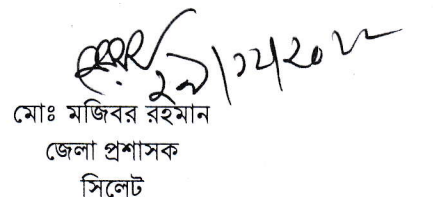 ২৯/১২/২০২২
মোঃ মজিবর রহমান
জেলা প্রশাসক
সিলেট